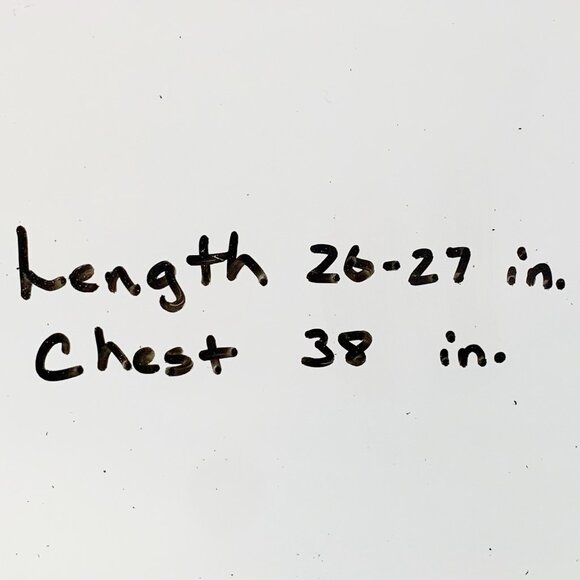 Length 26-27 in.
Chest 38 in.